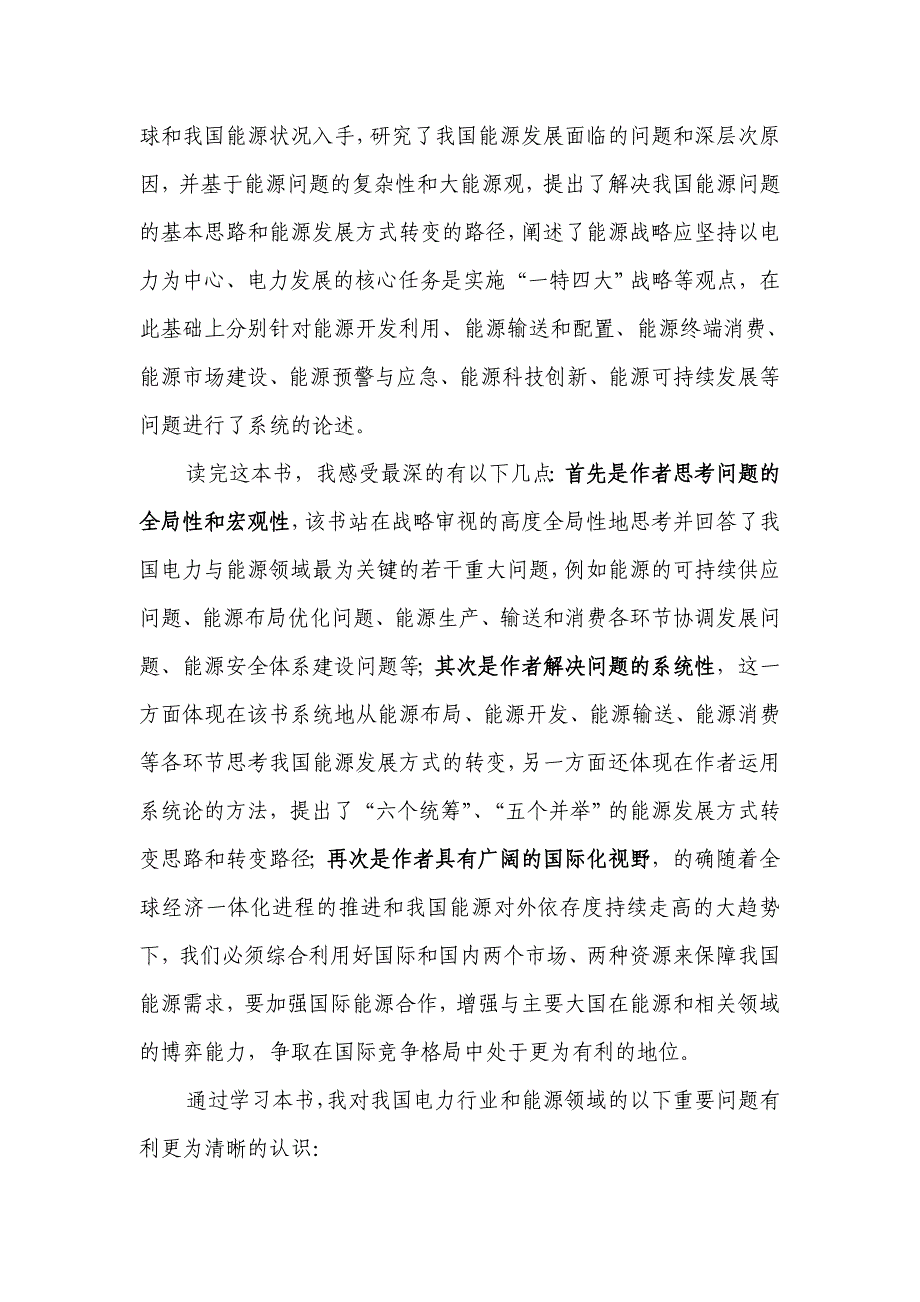 球和我国能源状况入手，研究了我国能源发展面临的问题和深层次原
因，并基于能源问题的复杂性和大能源观，提出了解决我国能源问题
的基本思路和能源发展方式转变的路径，阐述了能源战略应坚持以电
力为中心、电力发展的核心任务是实施“一特四大”战略等观点，在
此基础上分别针对能源开发利用、能源输送和配置、能源终端消费、
能源市场建设、能源预警与应急、能源科技创新、能源可持续发展等
问题进行了系统的论述。
读完这本书，我感受最深的有以下几点：首先是作者思考问题的
全局性和宏观性，该书站在战略审视的高度全局性地思考并回答了我
国电力与能源领域最为关键的若干重大问题，例如能源的可持续供应
问题、能源布局优化问题、能源生产、输送和消费各环节协调发展问
题、能源安全体系建设问题等；其次是作者解决问题的系统性，这一
方面体现在该书系统地从能源布局、能源开发、能源输送、能源消费
等各环节思考我国能源发展方式的转变，另一方面还体现在作者运用
系统论的方法，提出了“六个统筹”、“五个并举”的能源发展方式转
变思路和转变路径；再次是作者具有广阔的国际化视野，的确随着全
球经济一体化进程的推进和我国能源对外依存度持续走高的大趋势
下，我们必须综合利用好国际和国内两个市场、两种资源来保障我国
能源需求，要加强国际能源合作，增强与主要大国在能源和相关领域
的博弈能力，争取在国际竞争格局中处于更为有利的地位。
通过学习本书，我对我国电力行业和能源领域的以下重要问题有
利更为清晰的认识：